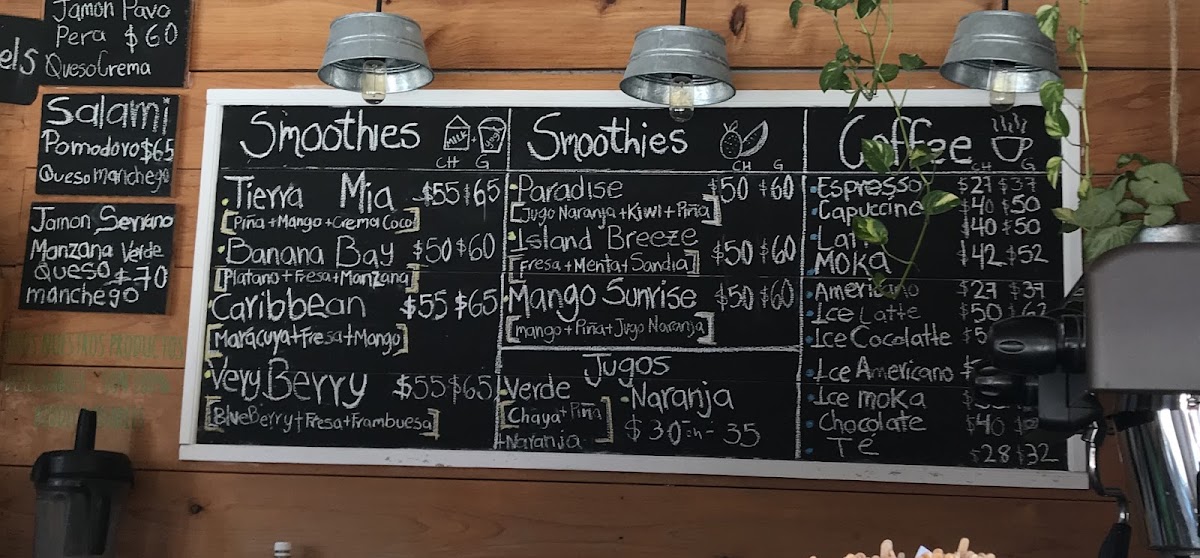 Jamon Pavo
Pera $60
Queso Crema
els
Salami
Pomodoro $65
Queso manchego
Jamon Serrano
Manzana Verde
Queso $70
manchego
Smoothies
MILK +
CH G
Tierra Mia $55 $65
[Piña + Mango + Crema Coco]
Banana Bay $50 $60
[Platano + Fresa + Manzana]
Caribbean $55 $65
[Maracuya + Fresa + Mango]
Very Berry $55 $65
[BlueBerry + Fresa + Frambuesa]
Smoothies
CH G
Paradise $50 $60
[Jugo Naranja + Kiwi + Piña]
Island Breeze $50 $60
[Fresa + Menta + Sandia]
Mango Sunrise $50 $60
[mango + Piña + Jugo Naranja]
Jugos
Verde
[Chaya + Piña]
+ Naranja
Naranja
$30 - ch - 35
Coffee
CH G
Espresso $27 $37
Capuccino $40 $50
$40 $50
Moka $42 $52
Americano $27 $37
Ice Latte $50
Ice Cocolatte
Ice Americano
Ice moka
Chocolate $40
Té $28 $32